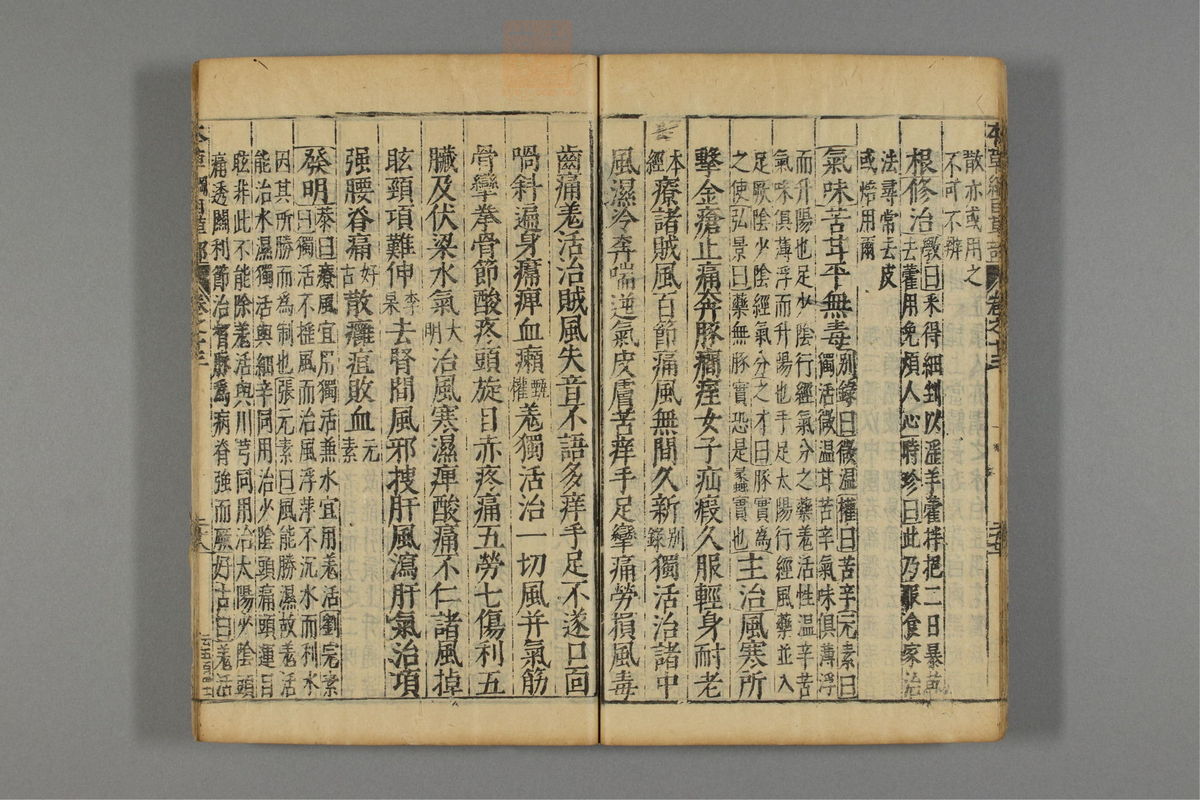 本草綱目草部 卷之十三
散亦或用之
不可不辨
根修治斅曰采得細剉以淫羊藿拌挹二日暴乾
去藿用免煩人心時珍曰此乃服食家治
法尋常去皮
或焙用爾
氣味苦甘平無毒別錄曰微溫權曰苦辛元素曰
獨活微溫甘苦辛氣味俱薄浮
而升陽也足少陰行經氣分之藥羌活性溫辛苦
氣味俱薄浮而升陽也手足太陽行經風藥並入
足厥陰少陰經氣分之才曰豚實為
之使弘景曰藥無豚實恐是蠡實也主治風寒所
擊金瘡止痛奔豚癇痓女子疝瘕久服輕身耐老
本經療諸賊風百節痛風無間久新別錄獨活治諸中
風濕冷奔喘逆氣皮膚苦痒手足攣痛勞損風毒
齒痛羌活治賊風失音不語多痒手足不遂口面
喎斜遍身𤸷痺血癩甄權羌獨活治一切風幷氣筋
骨攣拳骨節酸疼頭旋目赤疼痛五勞七傷利五
臟及伏梁水氣大明治風寒濕痺酸痛不仁諸風掉
眩頸項難伸李杲去腎間風邪搜肝風瀉肝氣治項
强腰脊痛好古散癰疽敗血元素
發明恭曰療風宜用獨活兼水宜用羌活劉完素
曰獨活不搖風而治風浮萍不沉水而利水
因其所勝而為制也張元素曰風能勝濕故羌活
能治水濕獨活與細辛同用治少陰頭痛頭運目
眩非此不能除羌活與川芎同用治太陽少陰頭
痛透關利節治督脈為病脊强而厥好古曰羌活
本草綱目草部 卷之十三